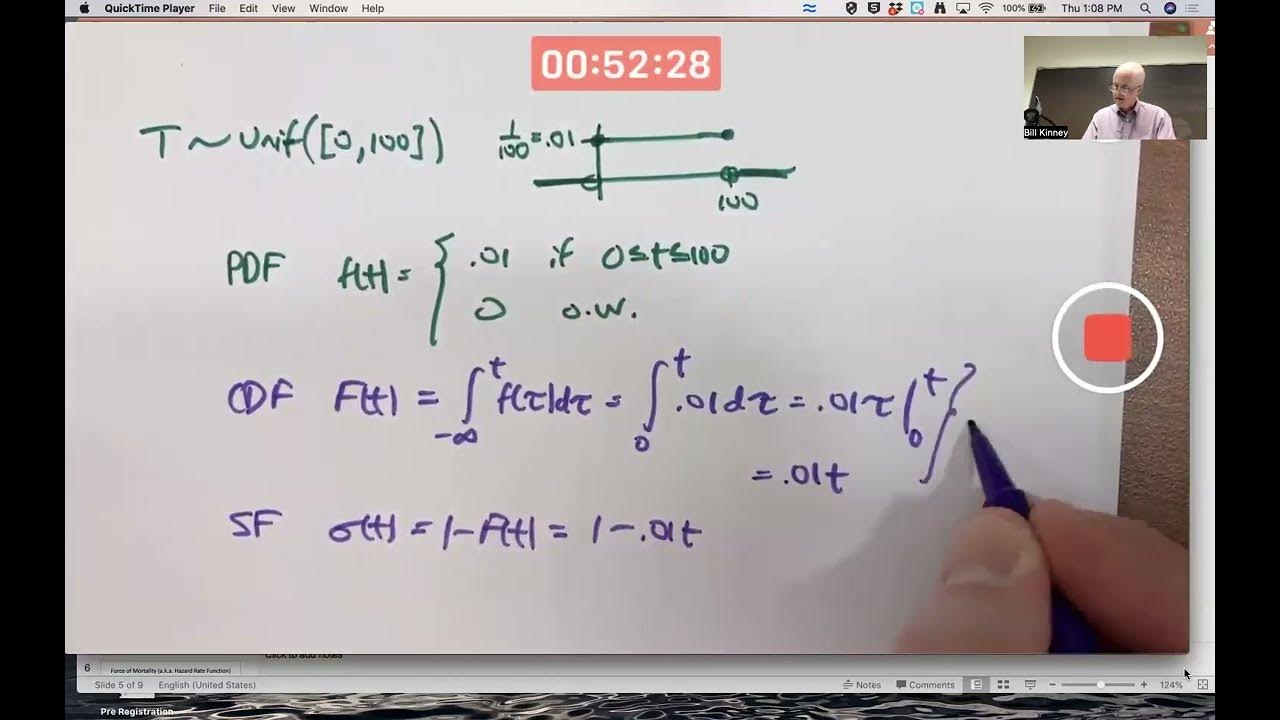 QuickTime Player File Edit View Window Help 100% Thu 1:08 PM
00:52:28
Bill Kinney
T ~ Unif([0,100]) 1/100 = .01
100
PDF f(t) = { .01 if 0≤t≤100
0 o.w.
CDF F(t) = ∫_{-∞}^{t} f(τ)dτ = ∫_{0}^{t} .01dτ = .01τ |_{0}^{t}
= .01t
SF σ(t) = 1-F(t) = 1-.01t
Click to add notes
6 Force of Mortality (a.k.a. Hazard Rate Function)
Slide 5 of 9 English (United States) Notes Comments 124%
Pre Registration